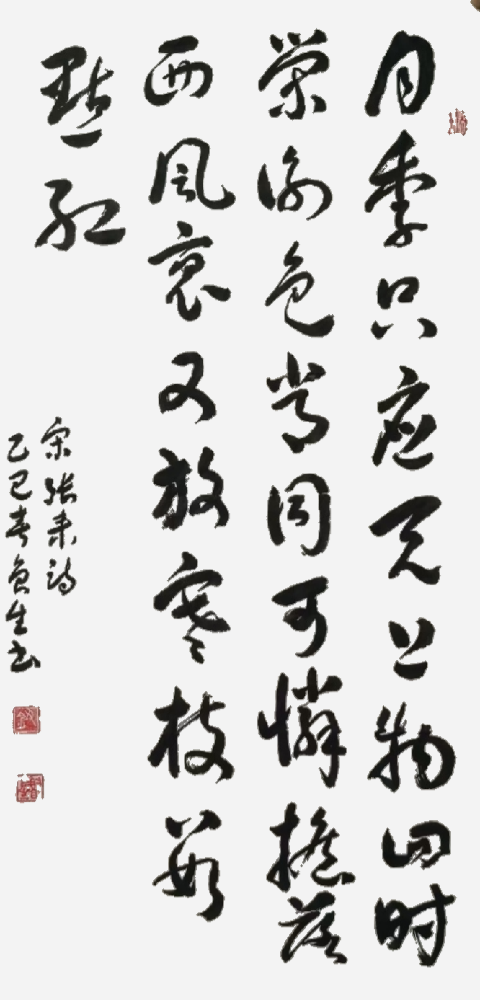 月季只应天上物四时
荣谢色常同可憐摇落
西風裏又放寒枝数
點红
宋张耒詩
乙巳春生书